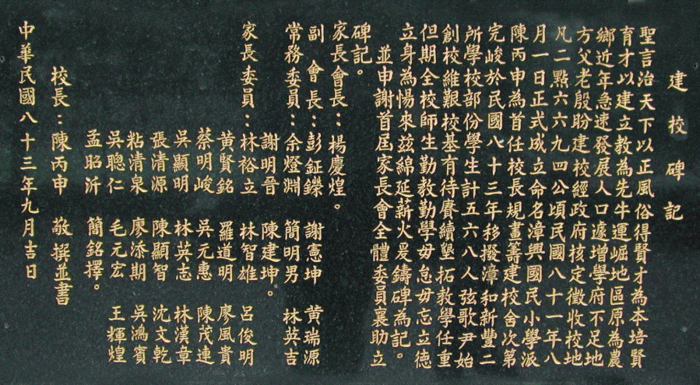 建校碑記
聖言治天下以正風俗得賢才為本培賢
育才以建立教為先牛運崛地區原為農
鄉近年急速發展人口遽增學府不足地
方父老殷盼建校經政府核定徵收校地
凡二點六六九四公頃民國八十一年八
月一日正式成立命名漳興國民小學派
陳丙申為首任校長規畫籌建校舍次第
完峻於民國八十三年移撥漳和新豐二
所學校部份學生計五六八人弦歌尹始
創校維艱校基有待賡續墾拓教學任重
但期全校師生勤教勤學毋怠毋忘立德
立身為惕來茲綿延薪火爰鑄碑為記。
並申謝首屆家長會全體委員襄助立
碑記。
家長會長：楊慶煌。
副會長：彭鉦鑠 謝憲坤 黃瑞源
常務委員：余燈淵 簡明男 林英吉
謝明晉 陳建坤。
家長委員：林裕立 林智雄 呂俊明
黃賢銘 羅道明 廖風貴
蔡明峻 吳元惠 陳茂連
吳顯明 林英志 林漢章
張清源 陳顯智 沈文乾
粘清泉 廖添期 吳鴻賓
吳聰仁 毛元宏 王輝煌
孟昭沂 簡銘擇。
校長：陳丙申 敬撰並書
中華民國八十三年九月吉日